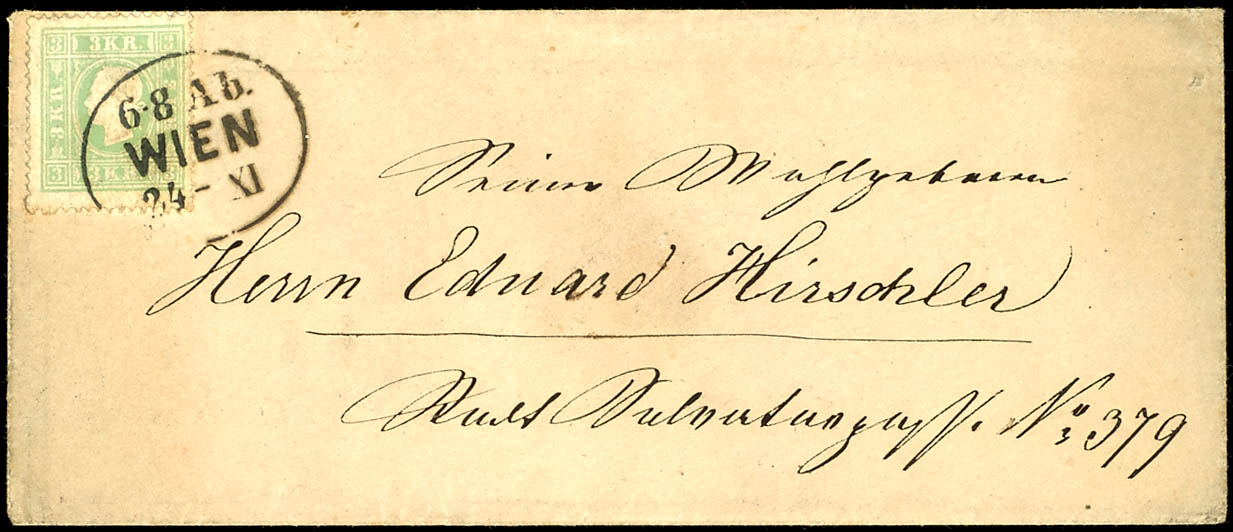 3 3 KR. 3
3 KR.
6-8 Ab.
WIEN
24 - XI
3 3 KR.
Seiner Wohlgeboren
Herrn Eduard Hirschler
Stadt Salvatorgasse No 379